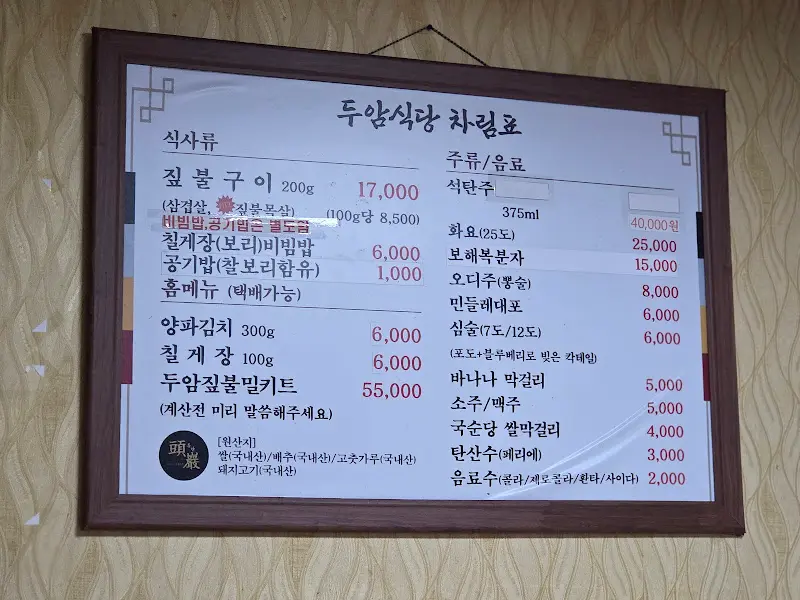 두암식당 차림표
식사류
짚불구이 200g 17,000
(삼겹살, 짚불목살) (100g당 8,500)
비빔밥,공기밥은 별도임
칠게장(보리)비빔밥 6,000
공기밥(찰보리함유) 1,000
홈메뉴 (택배가능)
양파김치 300g 6,000
칠게장 100g 6,000
두암짚불밀키트 55,000
(계산전 미리 말씀해주세요)
頭巖
[원산지]
쌀(국내산)/배추(국내산)/고춧가루(국내산)
돼지고기(국내산)
주류/음료
석탄주
375ml 40,000원
화요(25도) 25,000
보해복분자 15,000
오디주(뽕술) 8,000
민들레대포 6,000
심술(7도/12도) 6,000
(포도+블루베리로 빚은 칵테일)
바나나 막걸리 5,000
소주/맥주 5,000
국순당 쌀막걸리 4,000
탄산수(페리에) 3,000
음료수(콜라/제로콜라/환타/사이다) 2,000